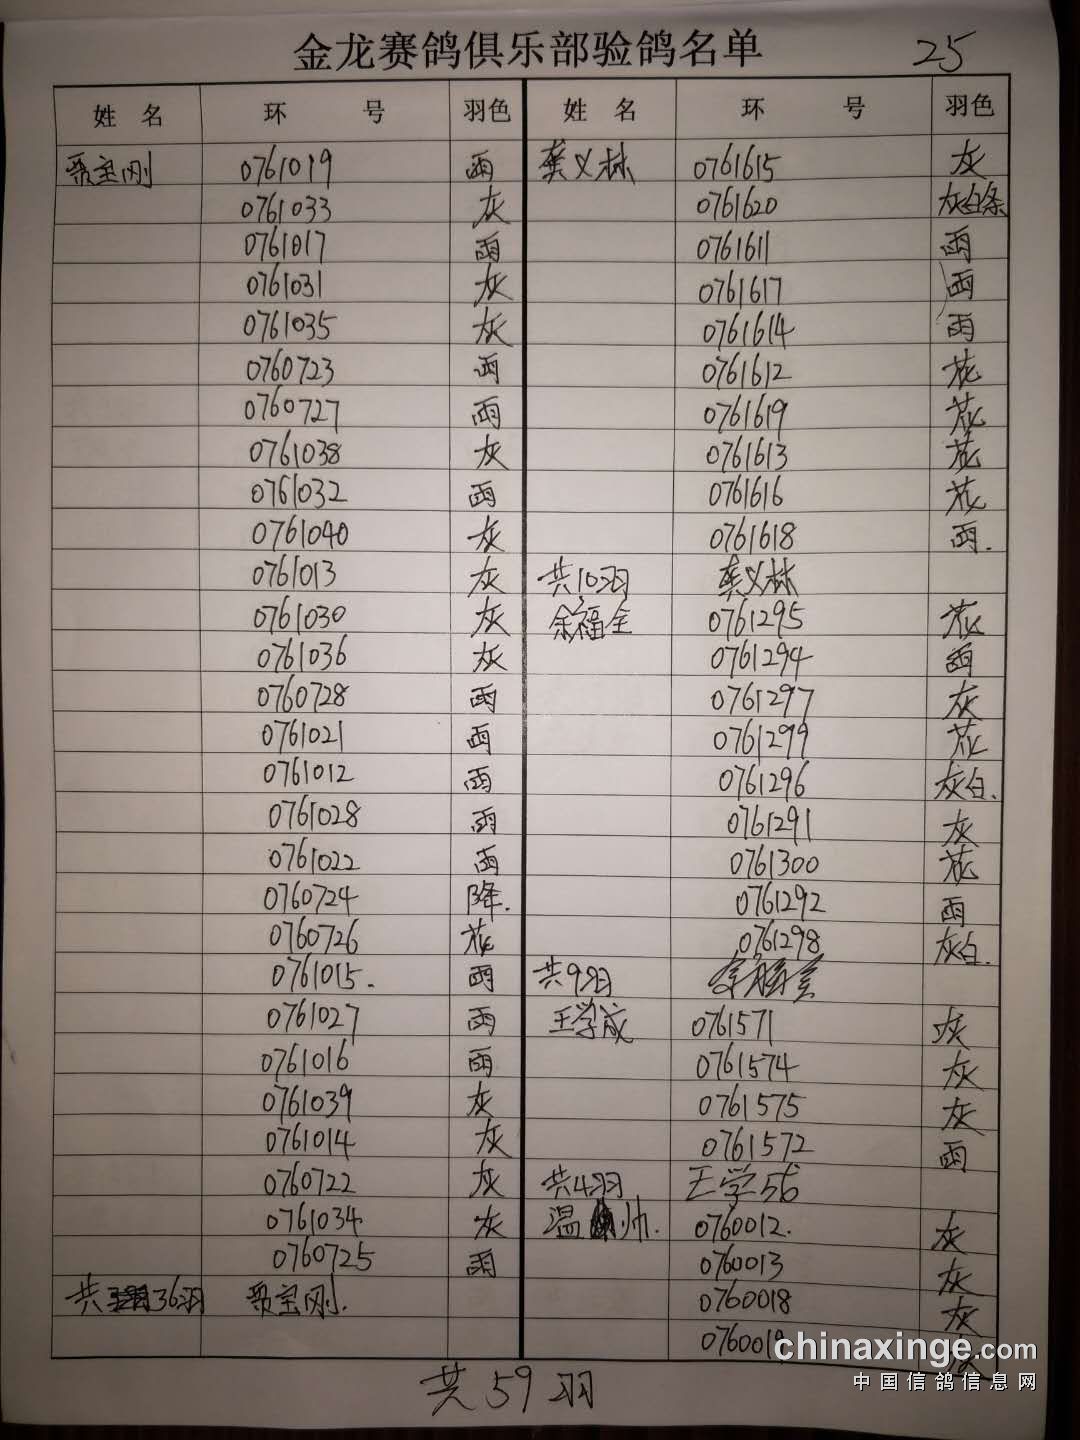 金龙赛鸽俱乐部验鸽名单
25
姓 名 环 号 羽色
宝刚 0761019 雨
0761033 灰
0761017 雨
0761031 灰
0761035 灰
0760723 雨
0760727 雨
0761038 灰
0761032 雨
0761040 灰
0761013 灰
0761030 灰
0761036 灰
0760728 雨
0761021 雨
0761012 雨
0761028 雨
0761022 雨
0760724 降.
0760726 花
0761015. 雨
0761027 雨
0761016 雨
0761039 灰
0761014 灰
0760722 灰
0761034 灰
0760725 雨
共 36羽 宝刚.
姓 名 环 号 羽色
龚义林 0761615 灰
0761620 灰白条
0761611 雨
0761617 雨
0761614 雨
0761612 花
0761619 花
0761613 花
0761616 花
0761618 雨.
共10羽 龚义林
余福全 0761295 花
0761294 雨
0761297 灰
0761299 花
0761296 灰白.
0761291 灰
0761300 花
0761292 雨
0761298 灰白.
共9羽 余福全
王学成 0761571 灰
0761574 灰
0761575 灰
0761572 雨
共4羽 王学成
温 帅. 0760012. 灰
0760013 灰
0760018 灰
0760019
共59羽
chinaxinge.com
中国信鸽信息网